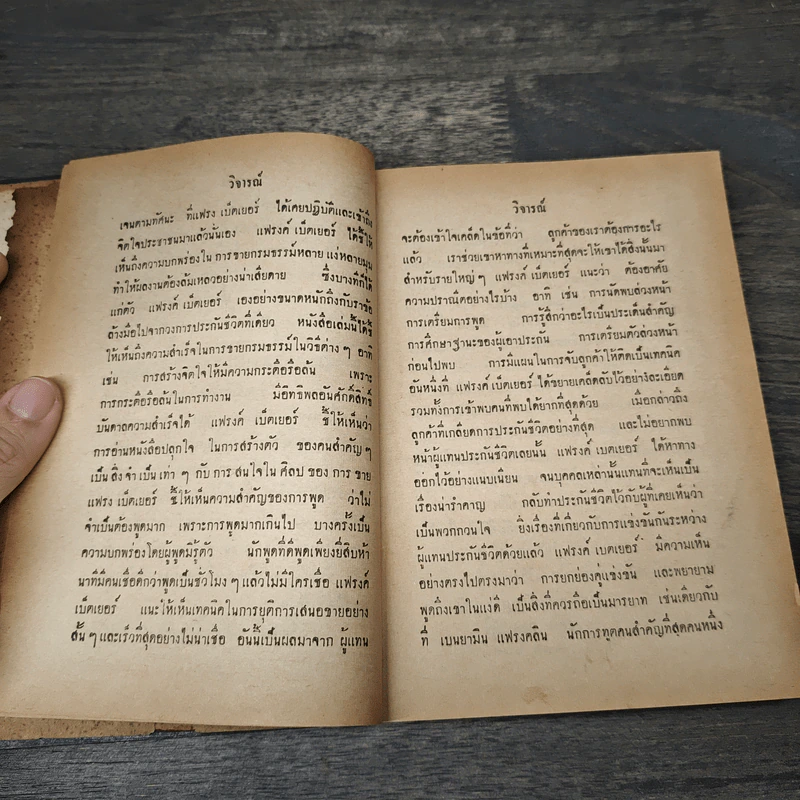 วิจารณ์
เจนตามทัศนะ ที่แฟรง เบ็ตเยอร์ ได้เคยปฏิบัติและเข้าถึง
จิตใจประชาชนมาแล้วนั่นเอง แฟรงค์ เบ็ตเยอร์ ได้ชี้ให้
เห็นถึงความบกพร่องใน การขายกรมธรรม์หลาย แง่หลายมุม
ทำให้ผลงานต้องล้มเหลวอย่างน่าเสียดาย ซึ่งบางทีก็ได้
แก่ตัว แฟรงค์ เบ็ตเยอร์ เองอย่างขนาดหนักถึงกับราข้อ
ล้างมือไปจากวงการประกันชีวิตทีเดียว หนังสือเล่มนี้ได้ชี้
ให้เห็นถึงความสำเร็จในการขายกรมธรรม์ในวิธีต่าง ๆ อาทิ
เช่น การสร้างจิตใจให้มีความกระตือรือล้น เพราะ
การกระตือรือล้นในการทำงาน มีอิทธิพลอันศักดิ์สิทธิ์
บันดาลความสำเร็จได้ แฟรงค์ เบ็ตเยอร์ ชี้ให้เห็นว่า
การอ่านหนังสือปลุกใจ ในการสร้างตัว ของคนสำคัญ ๆ
เป็น สิ่ง จำ เป็น เท่า ๆ กับ การ สนใจ ใน ศิลป ของ การ ขาย
แฟรง เบ็ตเยอร์ ชี้ให้เห็นความสำคัญของการพูด ว่าไม่
จำเป็นต้องพูดมาก เพราะการพูดมากเกินไป บางครั้งเป็น
ความบกพร่องโดยผู้พูดมิรู้ตัว นักพูดที่ดีพูดเพียงยี่สิบห้า
นาทีมีคนเชื่อดีกว่าพูดเป็นชั่วโมง ๆ แล้วไม่มีใครเชื่อ แฟรงค์
เบ็ตเยอร์ แนะให้เห็นเทคนิคในการยุติการเสนอขายอย่าง
สั้น ๆ และเร็วที่สุดอย่างไม่น่าเชื่อ อันนี้เป็นผลมาจาก ผู้แทน
วิจารณ์
จะต้องเข้าใจเคล็ดในข้อที่ว่า ลูกค้าของเราต้องการอะไร
แล้ว เราช่วยเขาหาทางที่เหมาะที่สุดจะให้เขาได้สิ่งนั้นมา
สำหรับรายใหญ่ ๆ แฟรงค์ เบ็ตเยอร์ แนะว่า ต้องอาศัย
ความปราณีตอย่างไรบ้าง อาทิ เช่น การนัดพบล่วงหน้า
การเตรียมการพูด การรู้สึกว่าอะไรเป็นประเด็นสำคัญ
การศึกษาฐานะของผู้เอาประกัน การเตรียมตัวล่วงหน้า
ก่อนไปพบ การมีแผนในการจับลูกค้าให้ติดเป็นเทคนิค
อันหนึ่งที่ แฟรงค์ เบ็ตเยอร์ ได้ขยายเคล็ดลับไว้อย่างละเอียด
รวมทั้งการเข้าพบคนที่พบได้ยากที่สุดด้วย เมื่อกล่าวถึง
ลูกค้าที่เกลียดการประกันชีวิตอย่างที่สุด และไม่อยากพบ
หน้าผู้แทนประกันชีวิตเลยนั้น แฟรงค์ เบตเยอร์ ได้หาทาง
ออกไว้อย่างแนบเนียน จนบุคคลเหล่านั้นแทนที่จะเห็นเป็น
เรื่องน่ารำคาญ กลับทำประกันชีวิตไว้กับผู้ที่เคยเห็นว่า
เป็นพวกกวนใจ ยิ่งเรื่องที่เกี่ยวกับการแข่งขันกันระหว่าง
ผู้แทนประกันชีวิตด้วยแล้ว แฟรงค์ เบตเยอร์ มีความเห็น
อย่างตรงไปตรงมาว่า การยกย่องคู่แข่งขัน และพยายาม
พูดถึงเขาในแง่ดี เป็นสิ่งที่ควรถือเป็นมารยาท เช่นเดียวกับ
ที่ เบนยามิน แฟรงคลิน นักการทูตคนสำคัญที่สุดคนหนึ่ง